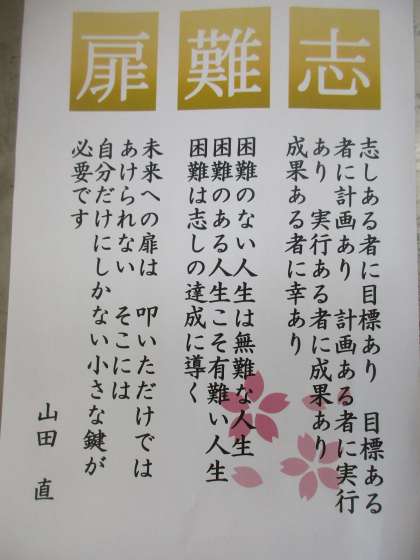 志
志しある者に目標あり 目標ある
者に計画あり 計画ある者に実行
あり 実行ある者に成果あり
成果ある者に幸あり
難
困難のない人生は無難な人生
困難のある人生こそ有難い人生
困難は志しの達成に導く
扉
未来への扉は 叩いただけでは
あけられない そこには
自分だけにしかない小さな鍵が
必要です
山田 直